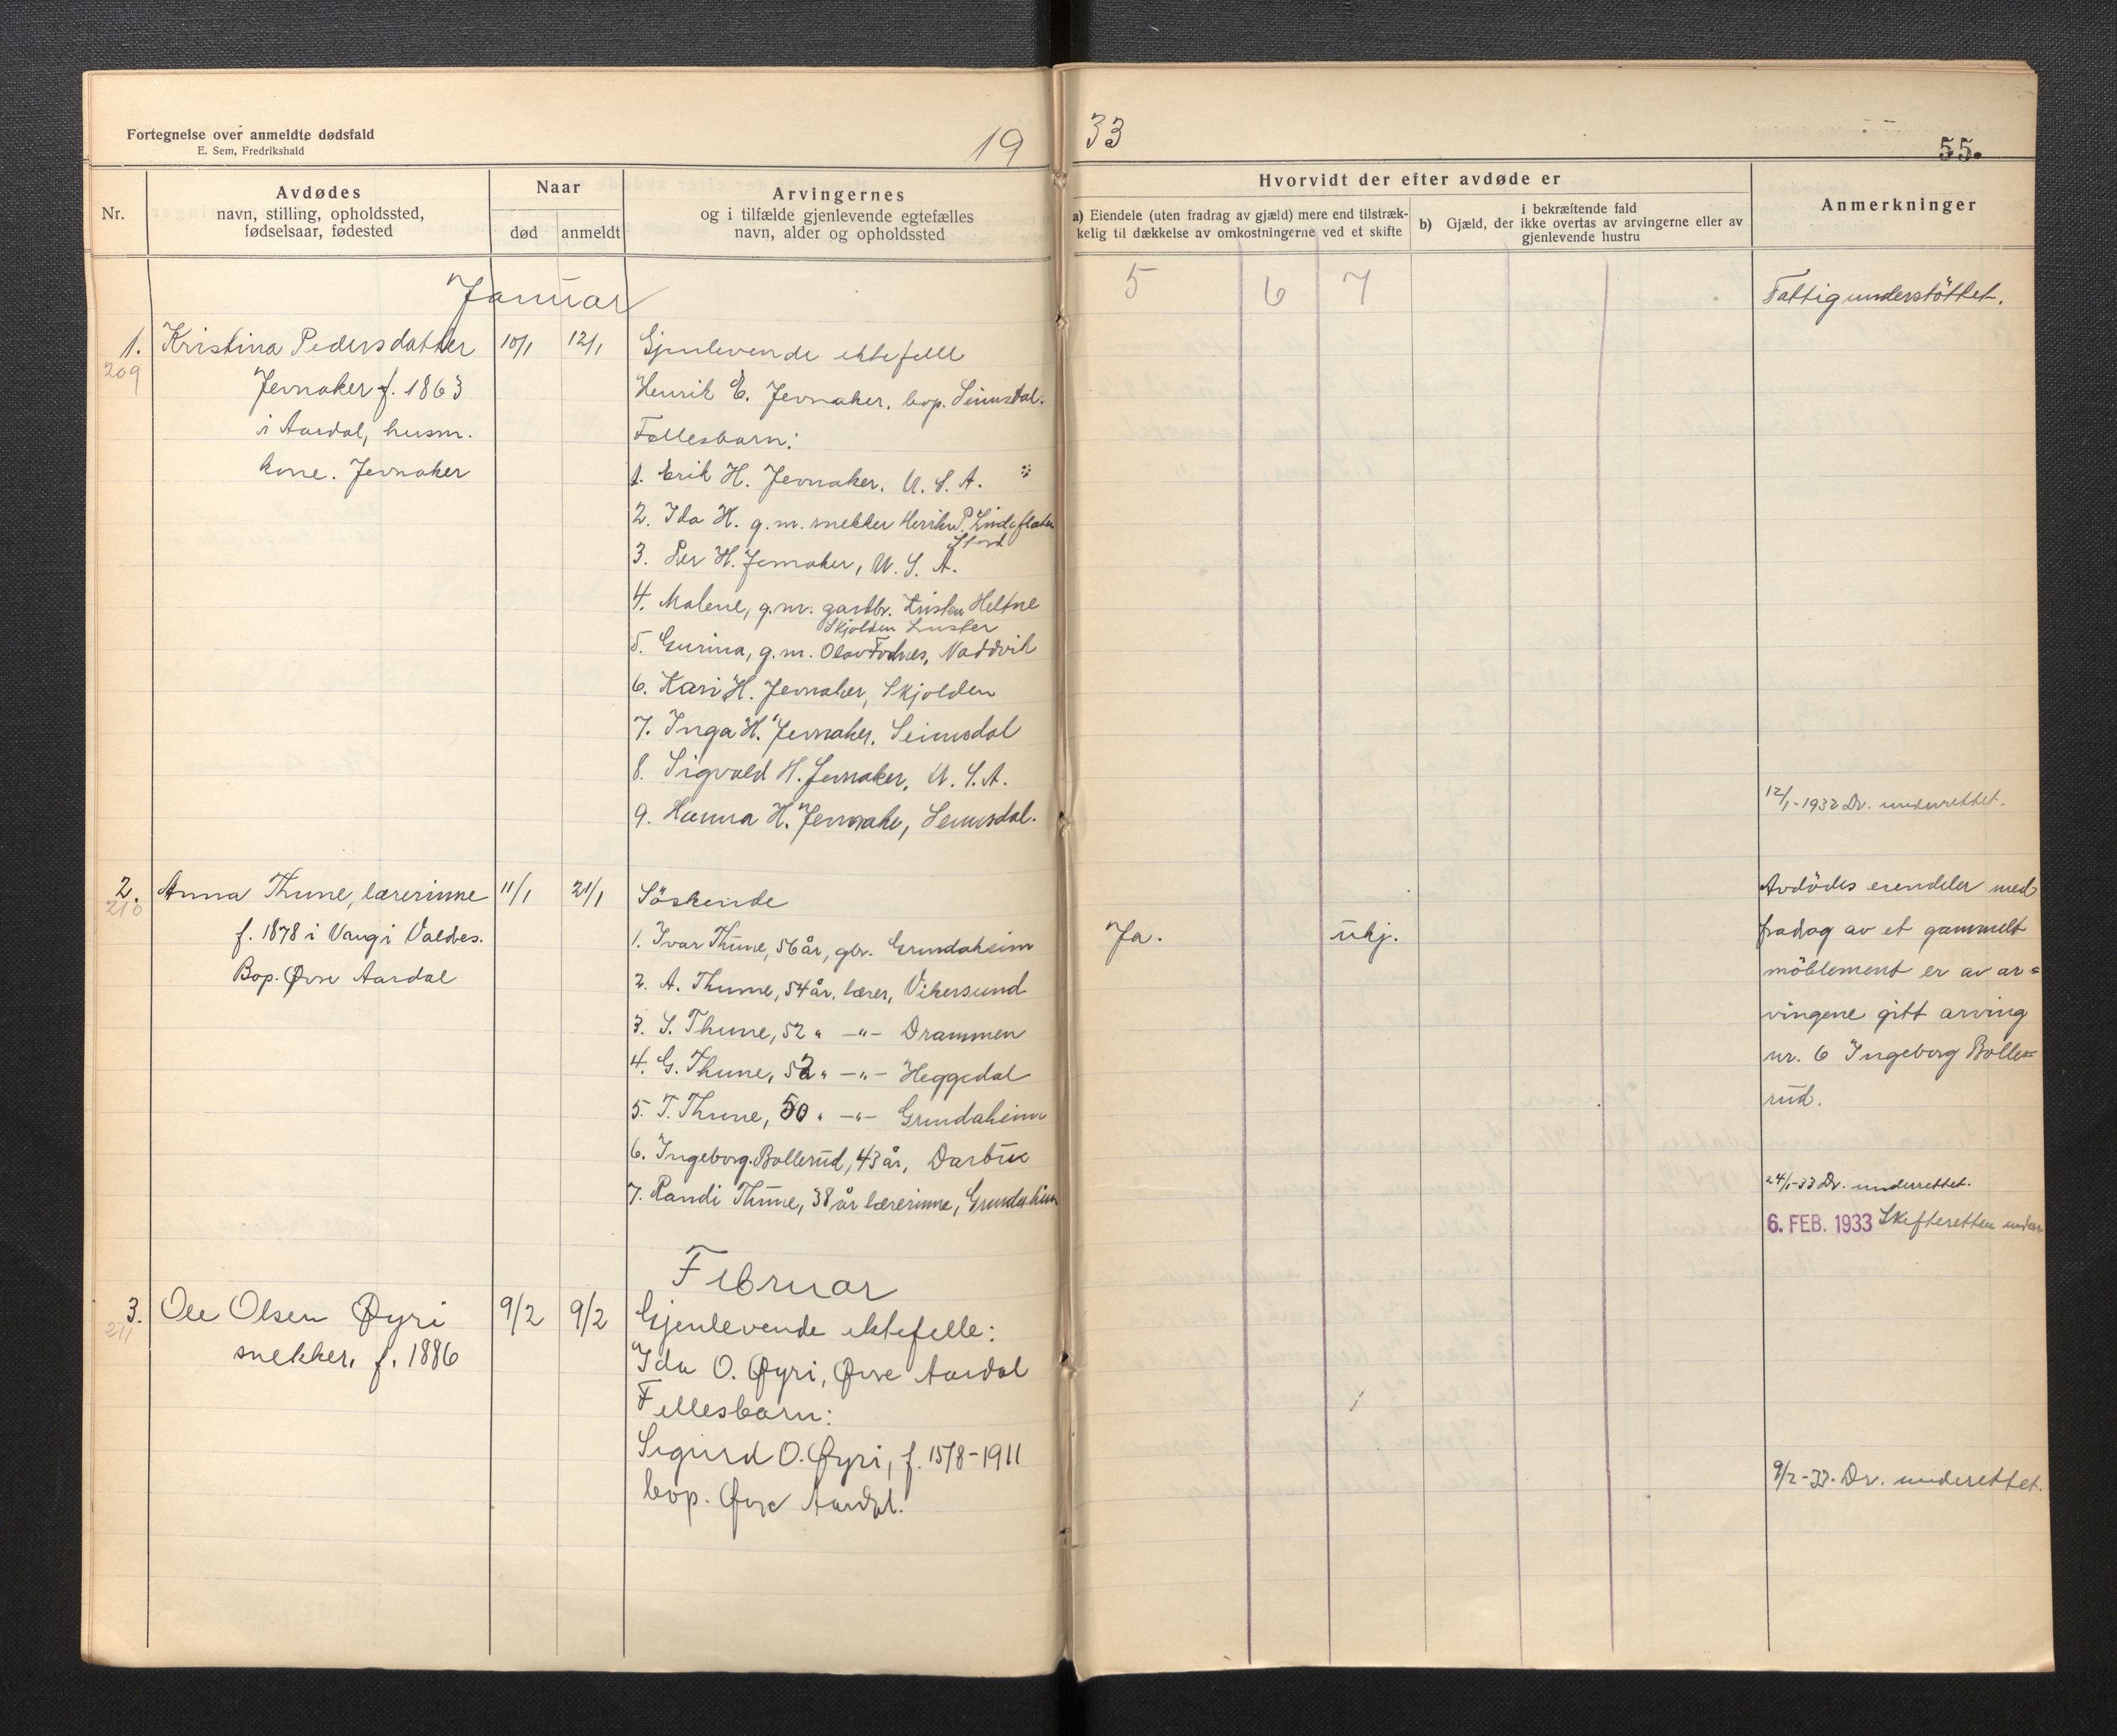 Fortegnelse over anmeldte dødsfald
E. Sem, Fredrikshald
19
33
55.
Nr.
Avdødes
navn, stilling, opholdssted,
fødselsaar, fødested
Naar
død
anmeldt
Arvingernes
og i tilfælde gjenlevende egtefælles
navn, alder og opholdssted
Hvorvidt der efter avdøde er
a) Eiendele (uten fradrag av gjæld) mere end tilstræk-
kelig til dækkelse av omkostningerne ved et skifte
b) Gjæld, der i bekræftende fald ikke overtas av arvingerne eller av
gjenlevende hustru
Anmerkninger
5
6
7
Januar
1.
209
Kristina Pedersdatter
Jevnaker f. 1863
i Aardal, husm.
kone. Jevnaker
10/1
12/1
Gjenlevende ektefelle
Henrik E. Jevnaker, bop. Seimsdal.
Fellesbarn:
1. Erik H. Jevnaker, U. S. A.
2. Ida H. g. m. snekker Henrik P.
Stord
3. Per H. Jevnaker, U. S. A.
4. Malene, g. m. gardbr. Kristen Heltne
Skjolden Luster
5. Gurina, g. m. Olav Fodnes, Naddvik
6. Kari H. Jevnaker, Skjolden
7. Inga H. Jevnaker, Seimsdal
8. Sigvald H. Jevnaker, U. S. A.
9. Hanna H. Jevnake, Seimsdal.
Fattigunderstöttet.
12/1-1933 Dr. underrettet.
2.
210
Anna Thune, lærerinne
f. 1878 i Vang i Valdres.
Bop. Øvre Aardal
11/1
21/1
Söskende
1. Ivar Thune, 56 år, gbr. Grundaheim
2. A. Thune, 54 år, lærer, Vikersund
3. S. Thune, 52 " -"- Drammen
4. G. Thune, 52 " -"- Heggedal
5. T. Thune, 50 " -"- Grundaheim
6. Ingeborg Bollerud, 43 år, Darbu
7. Randi Thune, 38 år lærerinne, Grundaheim
Ja.
ukj.
Avdödes eiendeler med
fradrag av et gammelt
möblement er av ar=
vingene gitt arving
nr. 6 Ingeborg Bolle=
rud.
24/1-33 Dr. underrettet.
6. FEB. 1933 Skifteretten
Februar
3.
211
Ole Olsen Øyri
snekker, f. 1886
9/2
9/2
Gjenlevende ektefelle:
Ida O. Øyri, Øvre Aardal
Fellesbarn:
Sigurd O. Øyri, f. 15/8-1911
bop. Øvre Aardal.
9/2-33. Dr. underettet.